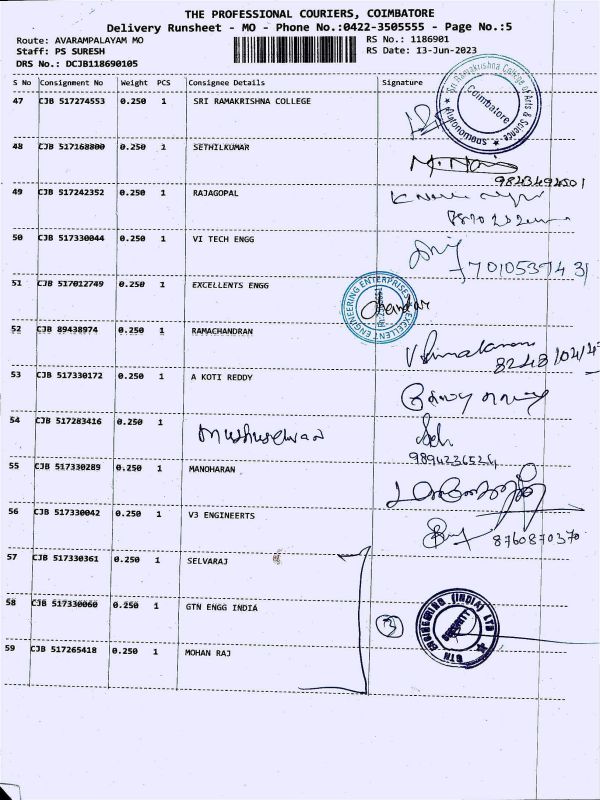 THE PROFESSIONAL COURIERS, COIMBATORE
Delivery Runsheet - MO - Phone No.:0422-3505555 - Page No.:5
Route: AVARAMPALAYAM MO RS No.: 1186901
Staff: PS SURESH RS Date: 13-Jun-2023
DRS No.: DCJB118690105
S No Consignment No Weight PCS Consignee Details Signature
47 CJB 517274553 0.250 1 SRI RAMAKRISHNA COLLEGE
Sri Ramakrishna College of Arts & Science
Coimbatore
Autonomous
48 CJB 517168800 0.250 1 SETHILKUMAR
49 CJB 517242352 0.250 1 RAJAGOPAL
50 CJB 517330044 0.250 1 VI TECH ENGG
51 CJB 517012749 0.250 1 EXCELLENTS ENGG
EXCELLENT ENGINEERING ENTERPRISES
52 CJB 89438974 0.250 1 RAMACHANDRAN
53 CJB 517330172 0.250 1 A KOTI REDDY
54 CJB 517283416 0.250 1
55 CJB 517330289 0.250 1 MANOHARAN
56 CJB 517330042 0.250 1 V3 ENGINEERTS
8760870370
57 CJB 517330361 0.250 1 SELVARAJ
58 CJB 517330060 0.250 1 GTN ENGG INDIA
GTN ENGINEERING (INDIA) LTD
SECURITY
59 CJB 517265418 0.250 1 MOHAN RAJ